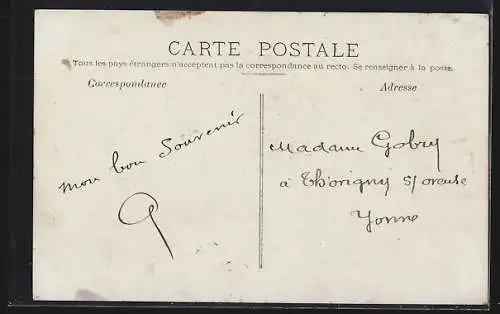 CARTE POSTALE
Tous les pays étrangers n'acceptent pas la correspondance au recto. Se renseigner à la poste.
Correspondance
Adresse
mon bon souvenir
Madame Gobry
à Thorigny s/ oreuse
Yonne